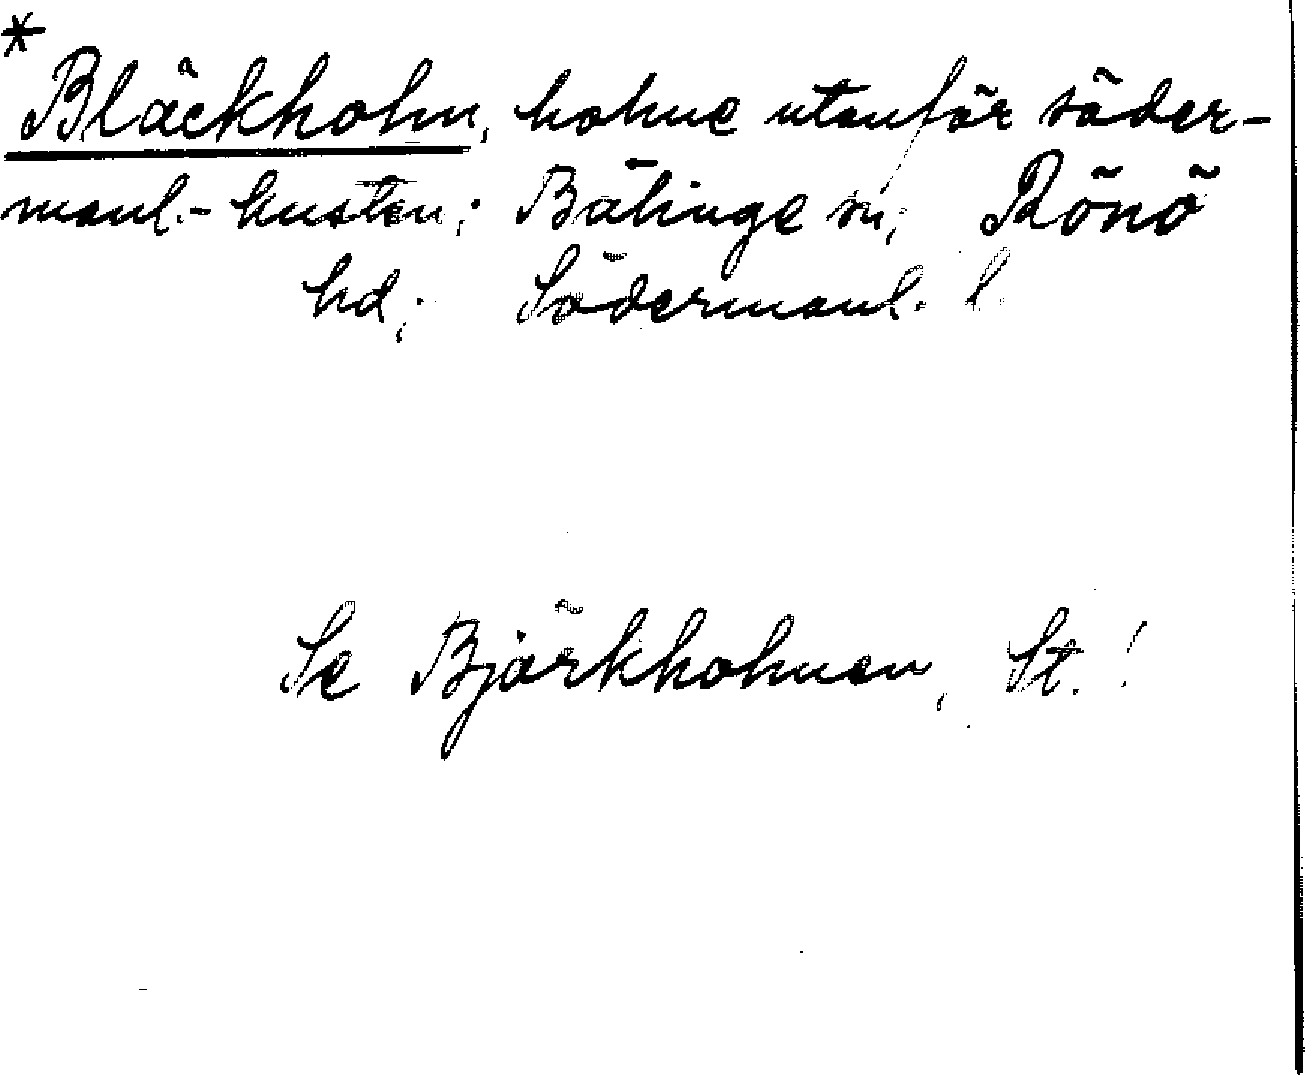 *
Bläckholm, holme utanför söder-
manl.-kusten; Bälinge sn; Rönö
hd; Södermanl. l.
Se Björkholmen, St. !